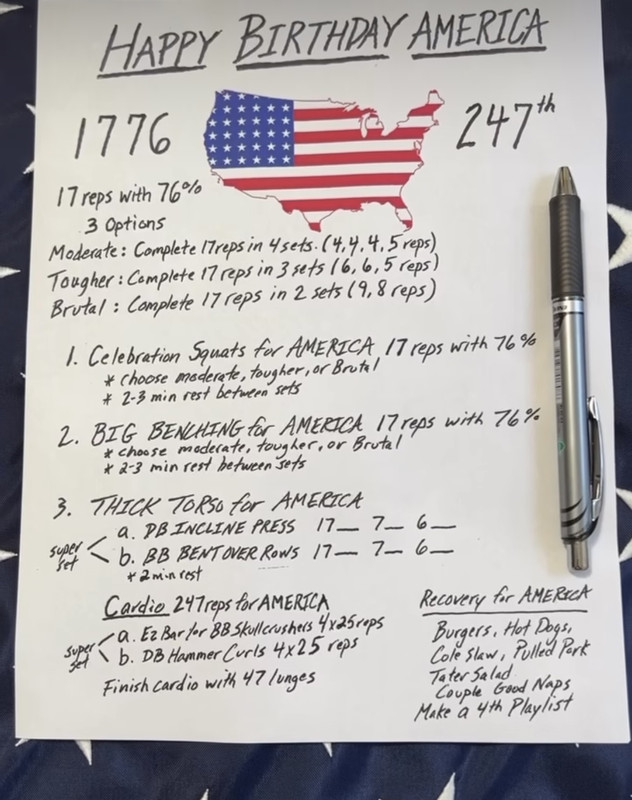 HAPPY BIRTHDAY AMERICA
1776
247th
17 reps with 76%
3 Options
Moderate: Complete 17 reps in 4 sets. (4,4,4,5 reps)
Tougher: Complete 17 reps in 3 sets (6,6,5 reps)
Brutal: Complete 17 reps in 2 sets (9,8 reps)
1. Celebration Squats for AMERICA 17 reps with 76%
* choose moderate, tougher, or Brutal
* 2-3 min rest between sets
2. BIG BENCHING for AMERICA 17 reps with 76%
* choose moderate, tougher, or Brutal
* 2-3 min rest between sets
3. THICK TORSO for AMERICA
super set
a. DB INCLINE PRESS 17__ 7__ 6__
b. BB BENT OVER ROWS 17__ 7__ 6__
* 2 min rest
Cardio 247 reps for AMERICA
super set
a. Ez Bar/or BB Skullcrushers 4x25 reps
b. DB Hammer Curls 4x25 reps
Finish cardio with 47 lunges
Recovery for AMERICA
Burgers, Hot Dogs,
Cole Slaw, Pulled Pork
Tater Salad
Couple Good Naps
Make a 4th Playlist